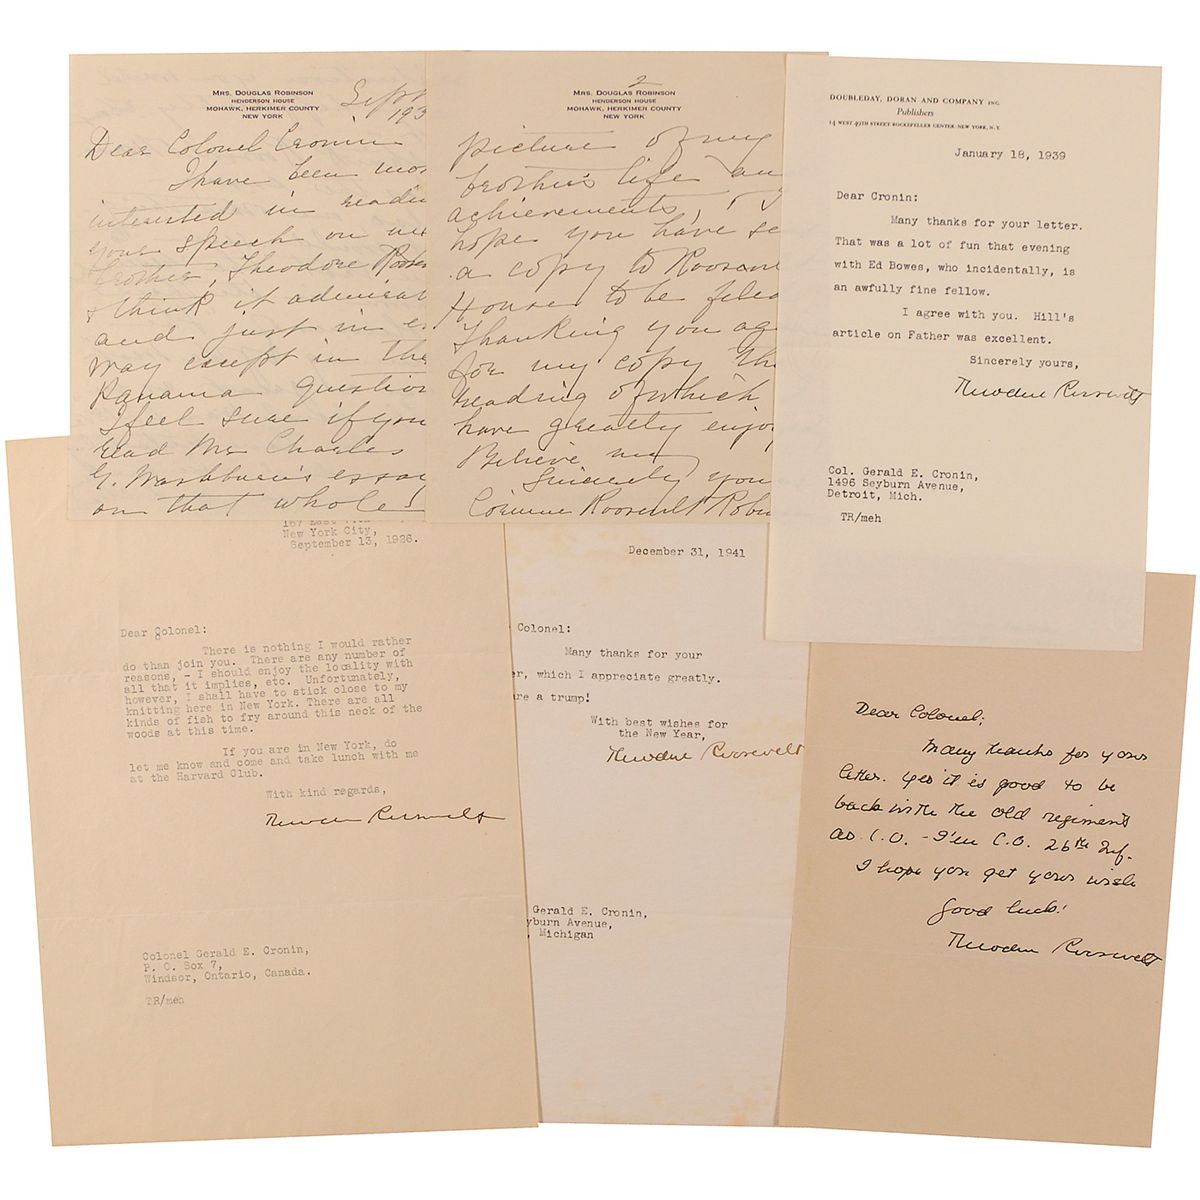 MRS. DOUGLAS ROBINSON
HENDERSON HOUSE
MOHAWK, HERKIMER COUNTY
NEW YORK
Sept
193
Dear Colonel Cronin
I have been mos
interested in readin
your speech on my
brother, Theodore Roosev
& think it admirab
and just in e
way except in the
Panama question
I feel sure if you
read Mr Charles
G. Washburn's essay
on that whole!
2
MRS. DOUGLAS ROBINSON
HENDERSON HOUSE
MOHAWK, HERKIMER COUNTY
NEW YORK
picture of my
brother's life an
achievements, I
hope you have se
a copy to Roosevel
House to be filed
Thanking you ag
for my copy the
reading of which
have greatly enjoy
Believe me
Sincerely you
Corinne Roosevelt Robin
DOUBLEDAY, DORAN AND COMPANY INC.
Publishers
14 WEST 49TH STREET·ROCKEFELLER CENTER·NEW YORK, N.Y.
January 18, 1939
Dear Cronin:
Many thanks for your letter.
That was a lot of fun that evening
with Ed Bowes, who incidentally, is
an awfully fine fellow.
I agree with you. Hill's
article on Father was excellent.
Sincerely yours,
Theodore Roosevelt
Col. Gerald E. Cronin,
1496 Seyburn Avenue,
Detroit, Mich.
TR/meh
167 East
New York City,
September 13, 1926.
Dear Colonel:
There is nothing I would rather
do than join you. There are any number of
reasons, - I should enjoy the locality with
all that it implies, etc. Unfortunately,
however, I shall have to stick close to my
knitting here in New York. There are all
kinds of fish to fry around this neck of the
woods at this time.
If you are in New York, do
let me know and come and take lunch with me
at the Harvard Club.
With kind regards,
Theodore Roosevelt
Colonel Gerald E. Cronin,
P. O. Box 7,
Windsor, Ontario, Canada.
TR/meh
December 31, 1941
Colonel:
Many thanks for your
er, which I appreciate greatly.
re a trump!
With best wishes for
the New Year,
Theodore Roosevelt
Gerald E. Cronin,
yburn Avenue,
, Michigan
Dear Colonel;
Many thanks for your
letter. Yes it is good to be
back with the old regiment
as C.O. - I'm C.O. 26th Inf.
I hope you get your wish
Good luck!
Theodore Roosevelt